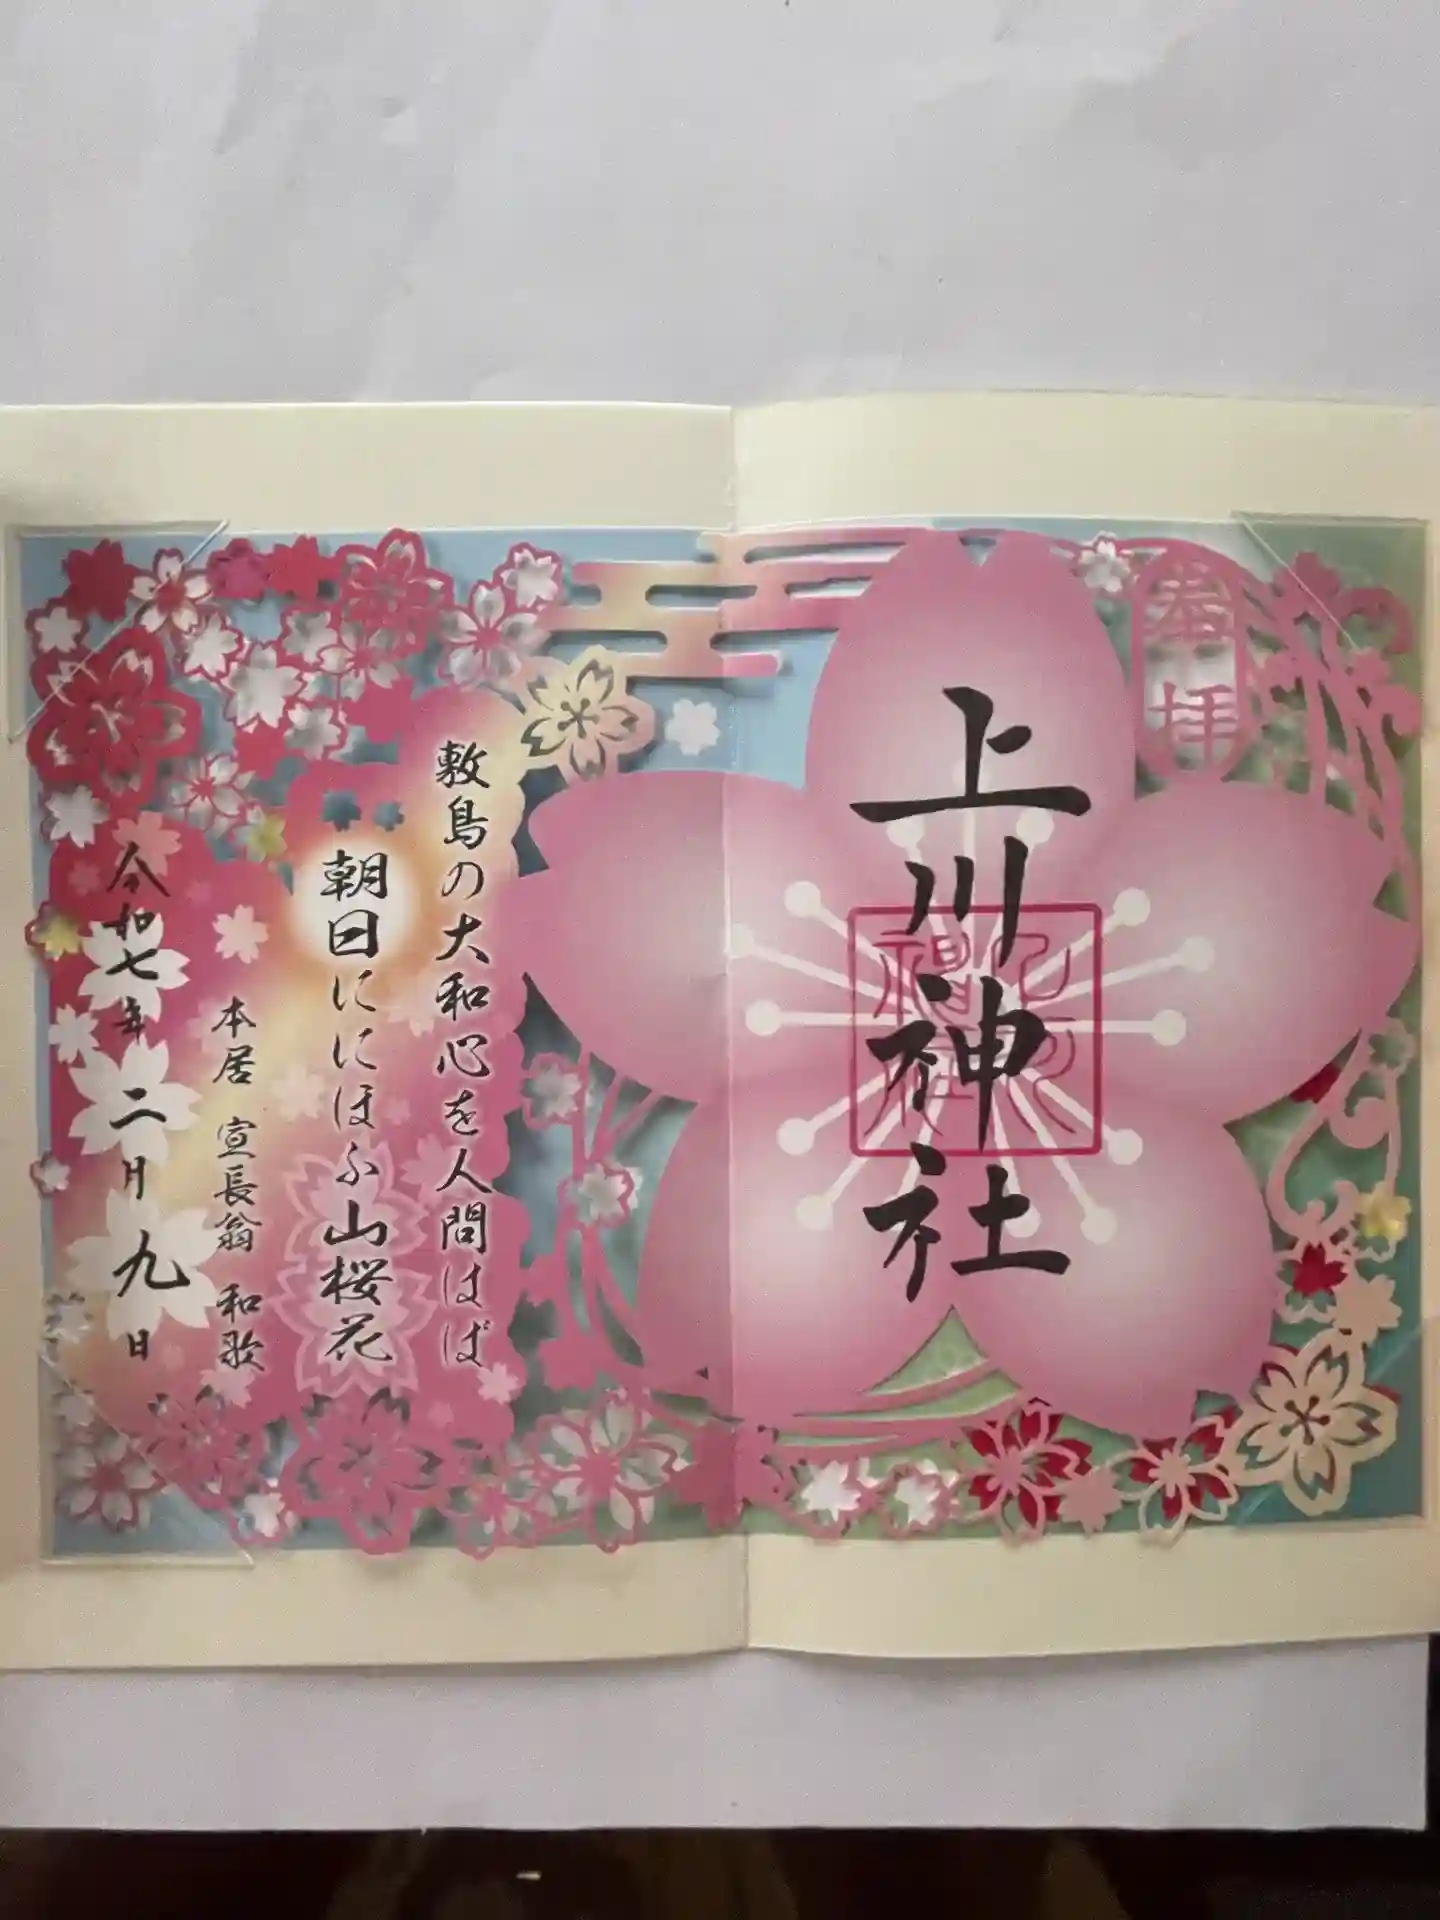 奉拝
上川神社
敷島の大和心を人問はば
朝日ににほふ山桜花
本居 宣長翁 和歌
令和七年二月九日